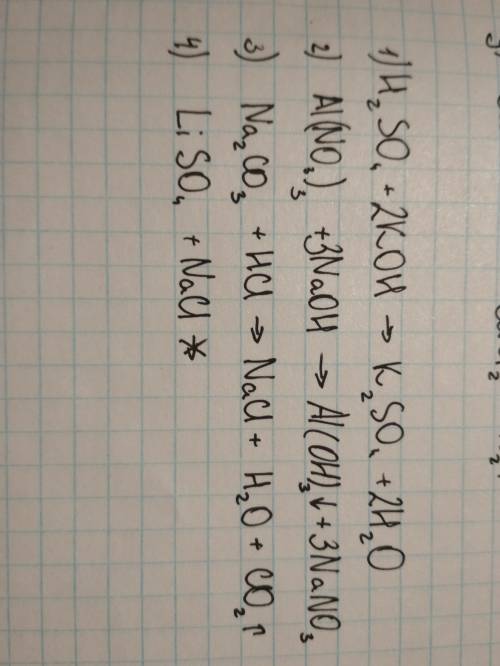 1) H₂SO₄ + 2KOH → K₂SO₄ + 2H₂O
2) Al(NO₃)₃ + 3NaOH → Al(OH)₃↓ + 3NaNO₃
3) Na₂CO₃ + HCl → NaCl + H₂O + CO₂↑
4) LiSO₄ + NaCl ↛